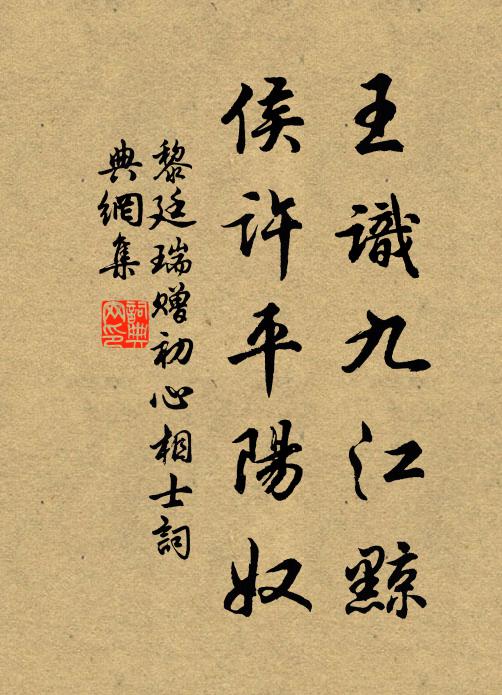 王識九江黥
侯許平陽奴
黎廷瑞贈初心相士詞
典網集
詞典網印